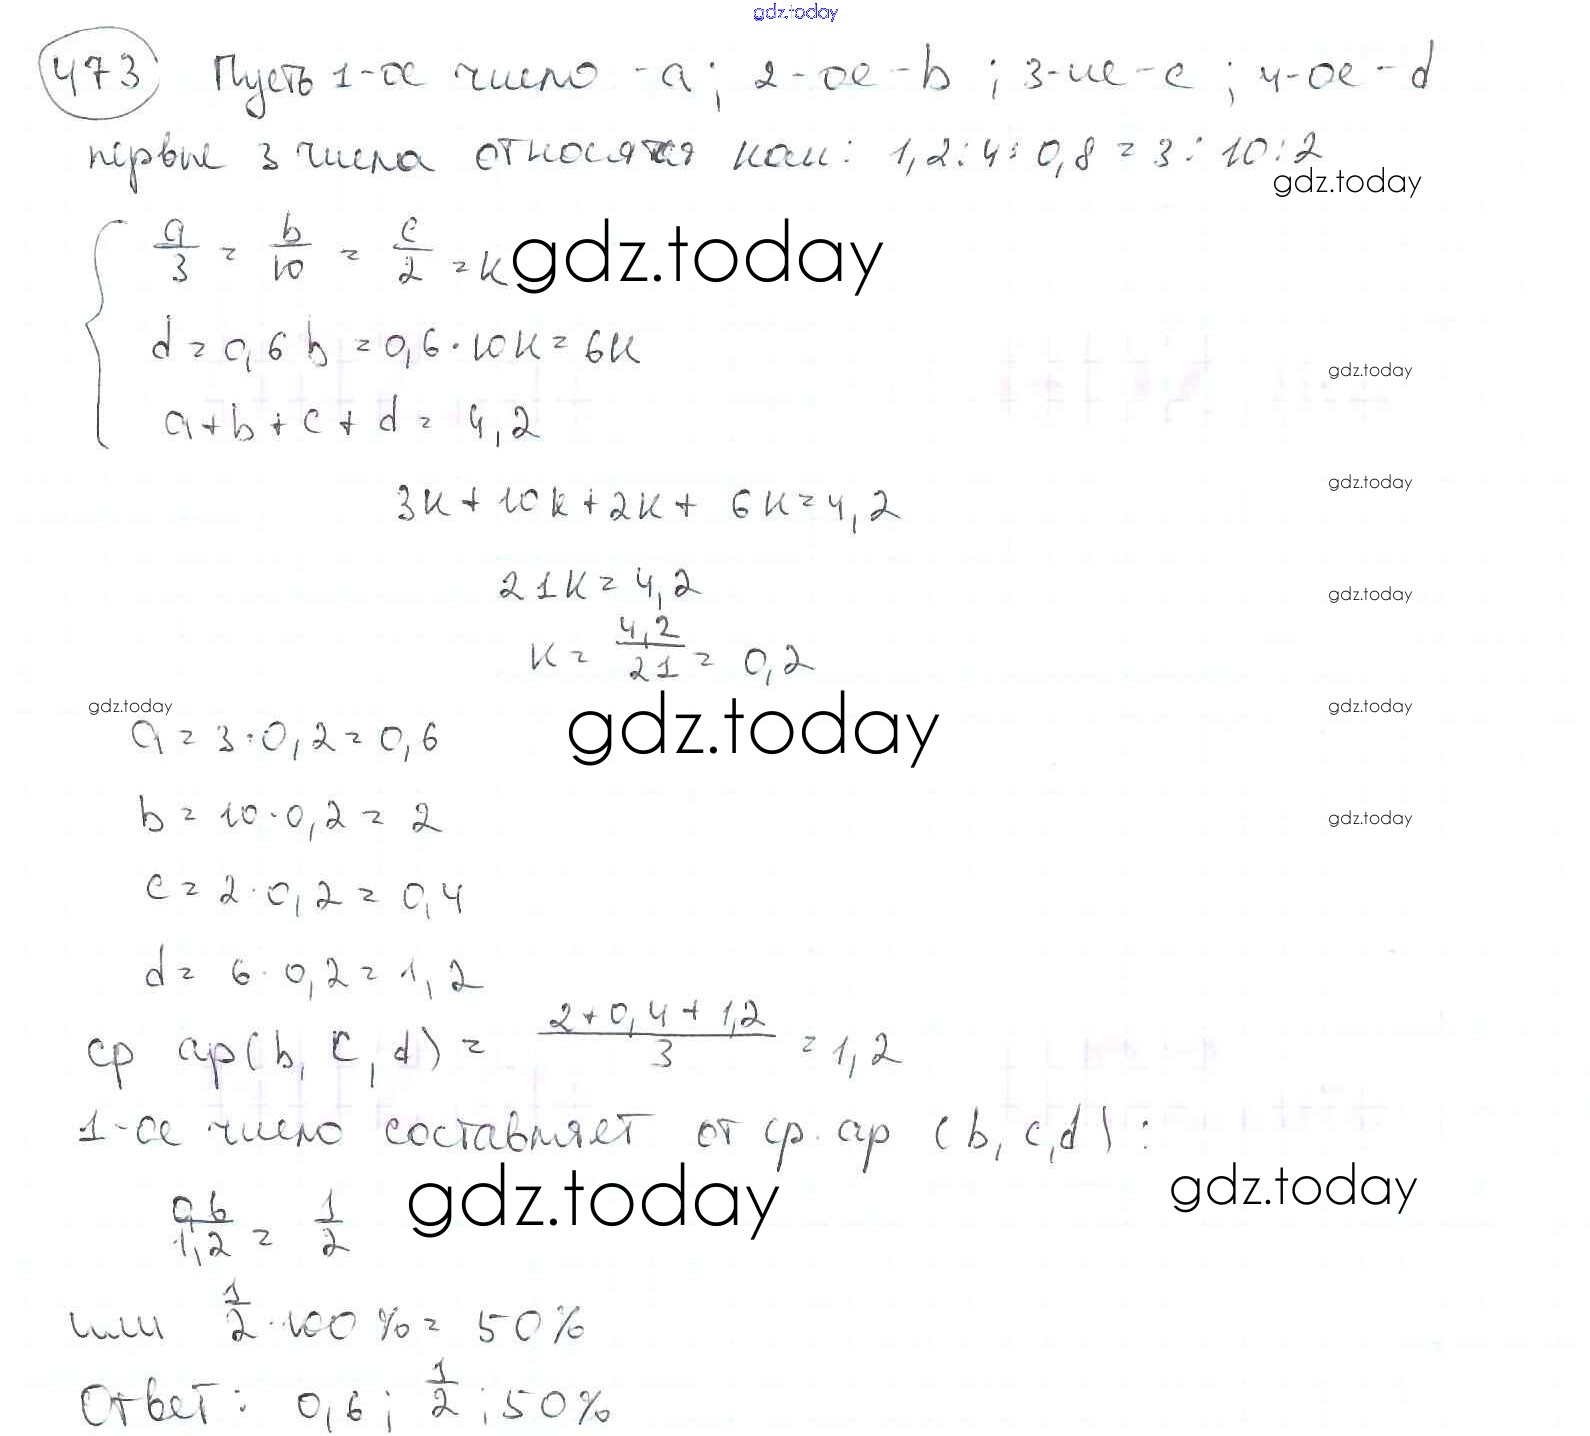 gdz.today
473 Пусть 1-ое число -a; 2-ое -b; 3-ие -c; 4-ое -d
первые 3 числа относятся как: 1,2:4:0,8 = 3:10:2
gdz.today
a/3 = b/10 = c/2 = k
gdz.today
d = 0,6b = 0,6·10k = 6k
gdz.today
a+b+c+d = 4,2
gdz.today
3k+10k+2k+ 6k=4,2
21k = 4,2
gdz.today
k = 4,2/21 = 0,2
gdz.today
gdz.today
gdz.today
a = 3·0,2=0,6
b = 10·0,2 = 2
gdz.today
c = 2·0,2 = 0,4
d = 6·0,2 = 1,2
ср ар(b, c, d) = (2+0,4+1,2)/3 = 1,2
1-ое число составляет от ср. ар (b, c, d):
gdz.today
gdz.today
0,6/1,2 = 1/2
или 1/2·100% = 50%
Ответ: 0,6; 1/2; 50%